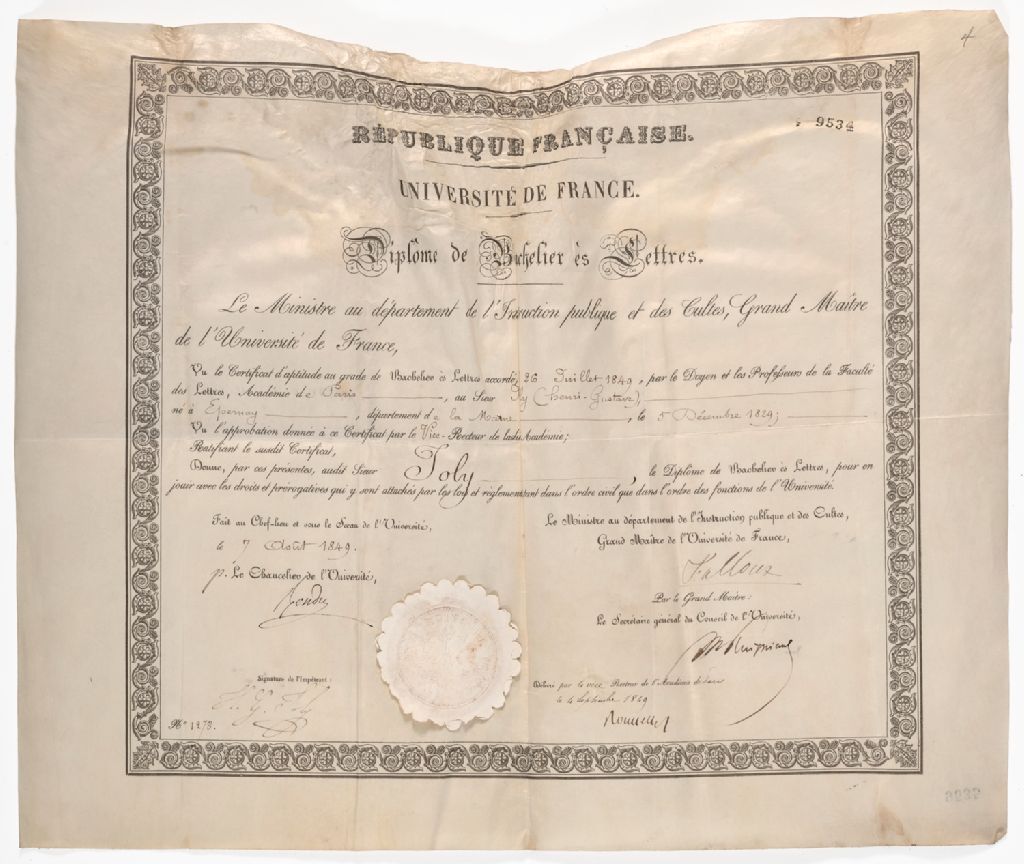 4
9534
RÉPUBLIQUE FRANÇAISE.
UNIVERSITÉ DE FRANCE.
Diplôme de Bachelier ès Lettres.
Le Ministre au département de l'Instruction publique et des Cultes, Grand Maître
de l'Université de France,
Vu le Certificat d'aptitude au grade de Bachelier ès Lettres accordé, 26 Juillet 1849, par le Doyen et les Professeurs de la Faculté
des Lettres, Académie de Paris, au Sieur (henri-Gustave)
né à Epernay, département de la Marne, le 5 Décembre 1829;
Vu l'approbation donnée à ce Certificat par le Vice-Recteur de ladite Académie;
Ratifiant le susdit Certificat,
Donne, par ces présentes, audit Sieur Joly le Diplôme de Bachelier ès Lettres, pour en
jouir avec les droits et prérogatives qui y sont attachés par les lois et règlements tant dans l'ordre civil que dans l'ordre des fonctions de l'Université.
Fait au Chef-lieu et sous le Sceau de l'Université,
le 7 Août 1849.
p. Le Chancelier de l'Université,
Le Ministre au département de l'Instruction publique et des Cultes,
Grand Maître de l'Université de France,
Falloux
Par le Grand Maître:
Le Secrétaire général du Conseil de l'Université,
Signature de l'Impétrant:
H. G. Joly
Délivré par le vice Recteur de l'Académie de Paris
le 4 Septembre 1849
Rousselle
Nº 1973.
3232